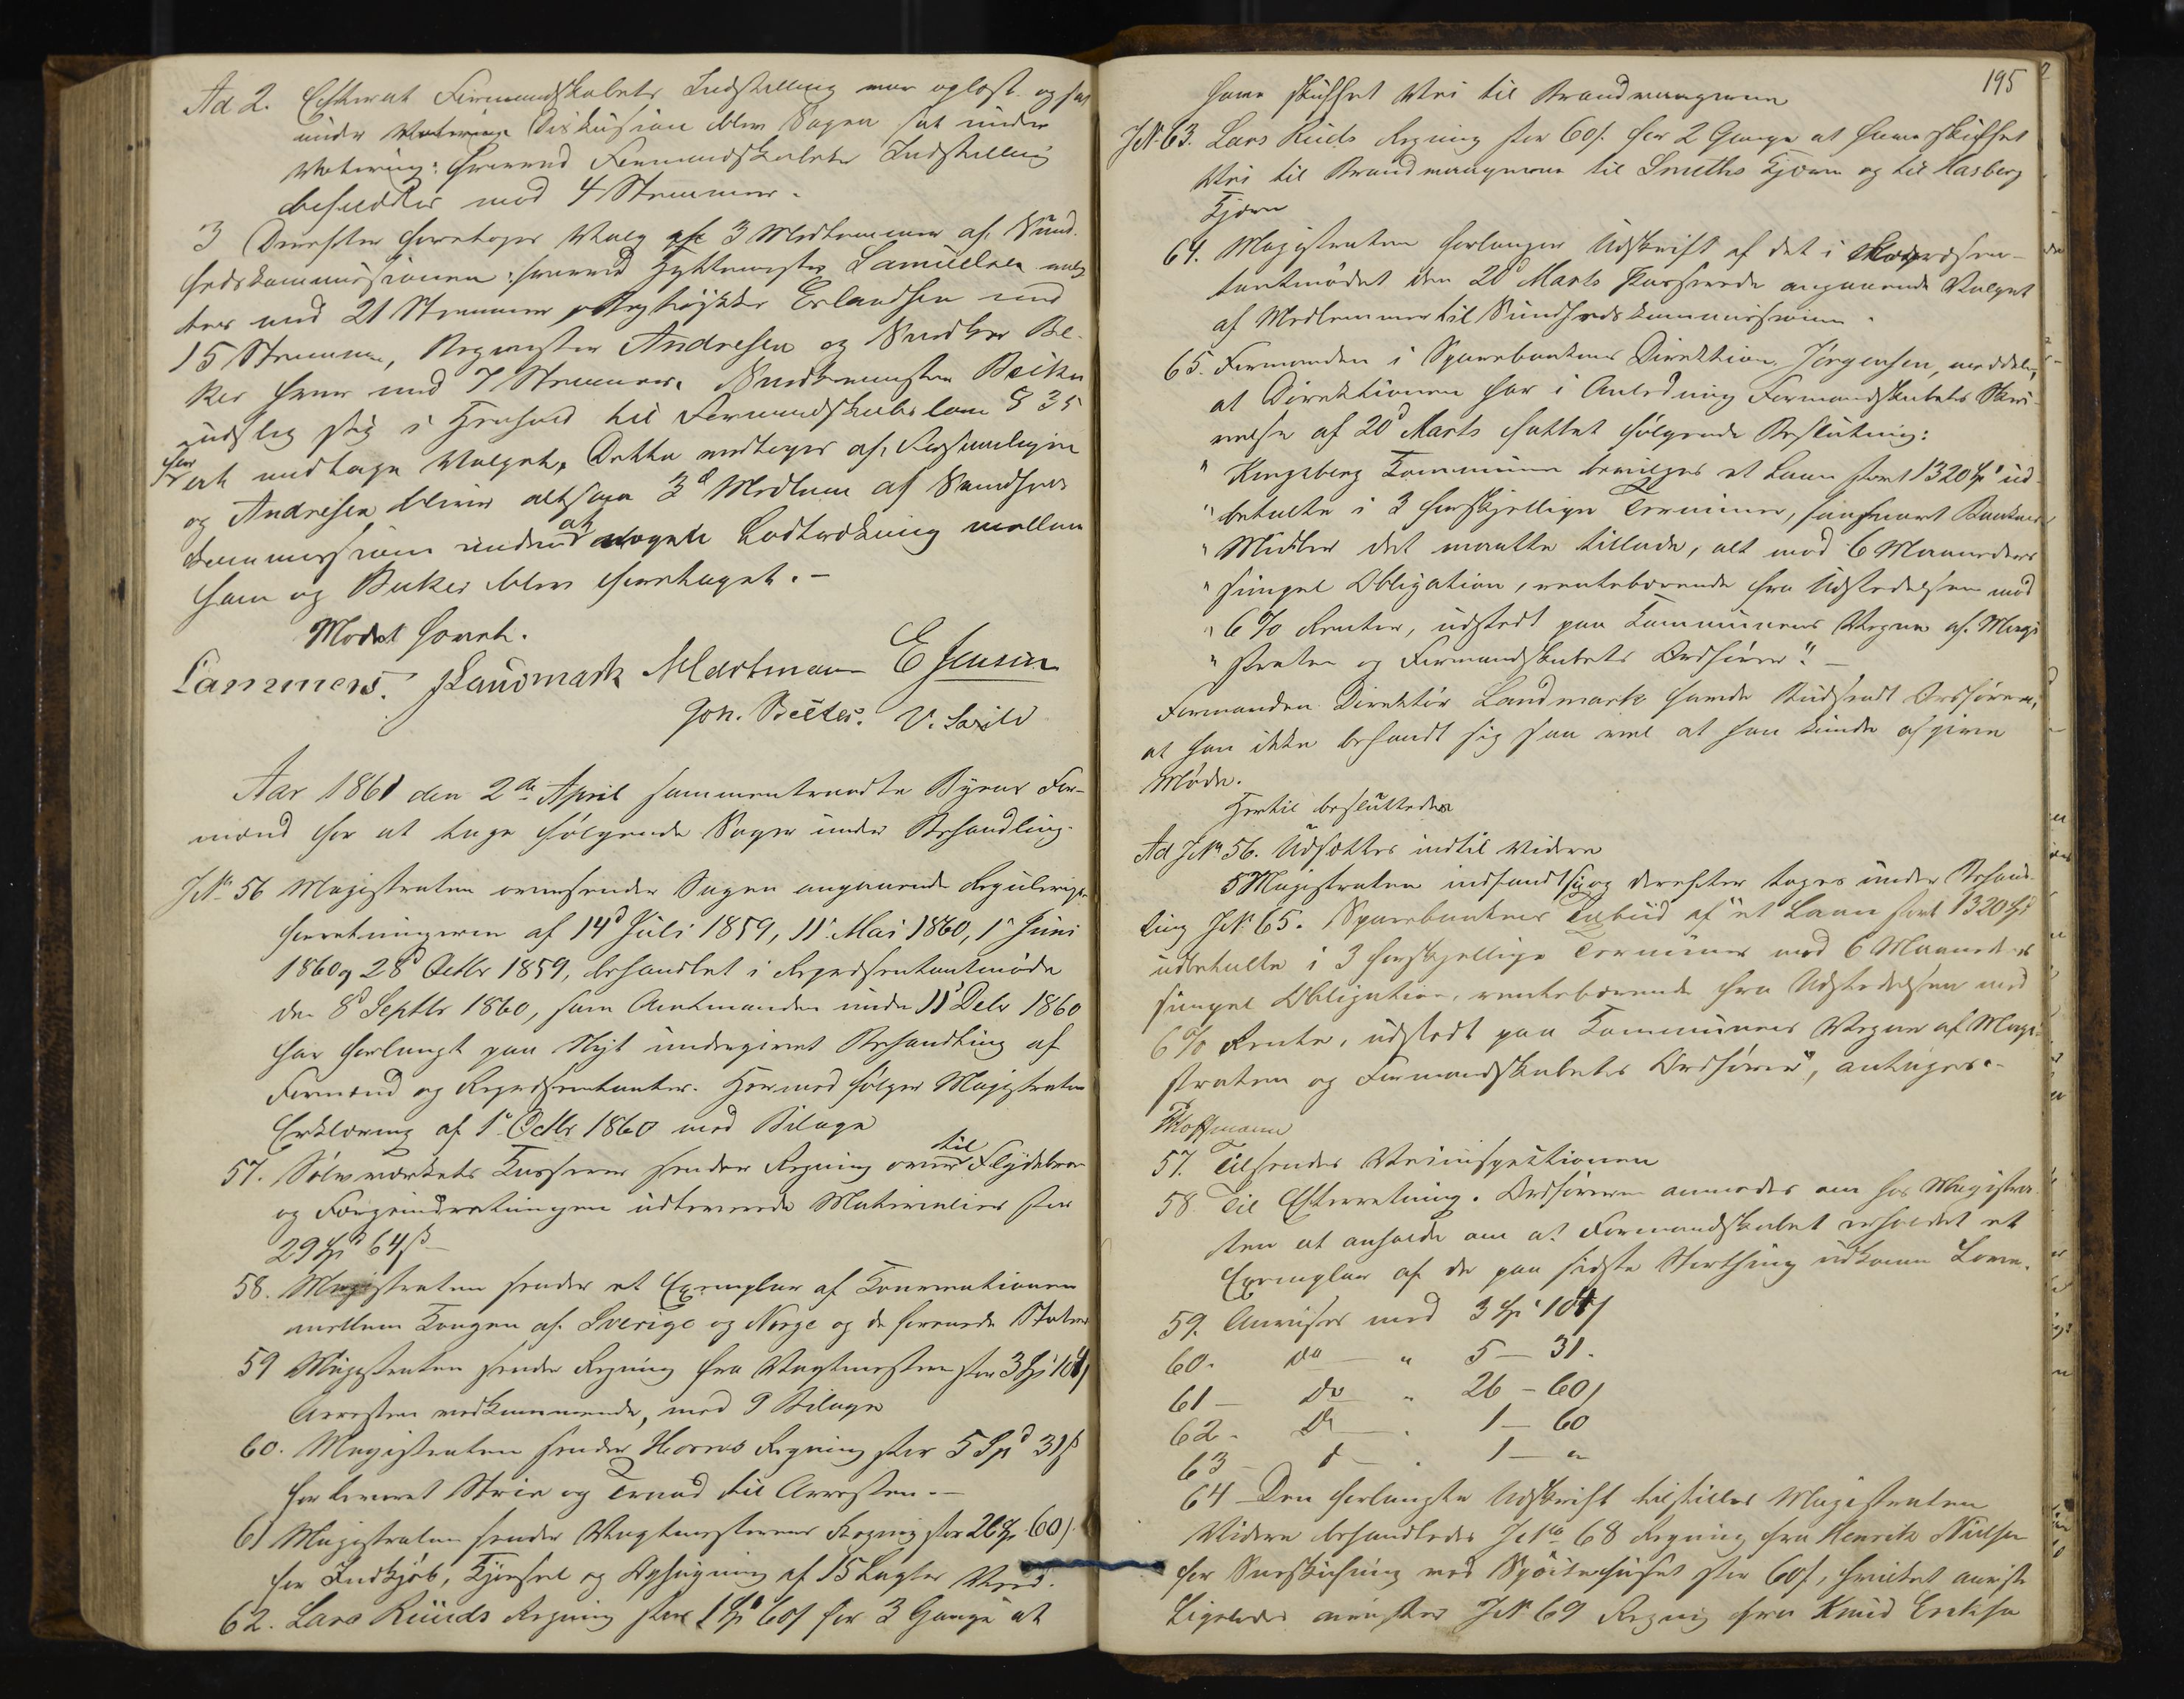 Ad 2. Efterat Formandskabets Indstilling var oplæst og sat
under Votering Diskusion blev Sagen sat under
Votering: hvorved Formandskabets Indstilling
befuldtes med 4 Stemmer.
3 Derefter foretoges Valg af 3 Medlemmer af Sund-
hedskommissionen: hvorved Hyttemester Samuelsen valg-
tes med 21 Stemmer, Erlandsen med
15 Stemmer, Andresen og Be-
ker hver med 7 Stemmer. Beker
undslog sig i Henhold til Formandskabsloven § 35
for at modtage Valget. Dette modtoges af Forsamlingen
og Andresen bliver altsaa 3d Medlem af Sundheds
Kommissionen uden at nogen Lodtrækning mellem
ham og Beker blev foretaget. –
Mødet hævet.
Lammers. Landmark Martman E Jensen
Joh. V.
Aar 1861 den 2de April sammentraadte Byens For-
mænd for at tage følgende Sager under Behandling.
JNr 56 Magistraten oversender Sagen angaaende Regulerings
forretningerne af 14d Juli 1859, 11 Mai 1860, 1 Juni
1860 og 28d Octbr 1859, behandlet i Repræsentantmøde
den 8d Septbr 1860, som Amtmanden under 11 Debr 1860
har forlangt paa Nyt undergivet Behandling af
Formænd og Repræsentanter. Hermed følger Magistratens
Erklæring af 1 Octbr 1860 med Bilage
57. Sølvværkets Kasserer sender Regning over til Flydebroe
og Færgeindretningen udleverede Materialier stor
29 Spd 64 ß
58. Magistraten sender et Exemplar af Konventionen
mellem Kongen af Sverige og Norge og de forenede Stater
59 Magistraten sender Regning fra Vagtmesteren stor 3 Spd 104
Arresten vedkommende, med 9 Bilage
60. Magistraten sender Horns Regning stor 5 Spd 31 ß
for leveret Strie og Traad til Arresten. –
61 Magistraten sender Vagtmesterens Regning stor 26 Sp 60
for Indkjøb, Kjørsel og Ophugning af 15 Lagter Ved.
62. Lars Ruuds Regning stor 1 Sp 60 ß for 3 Gange at
195
have skuffet Vei til Brandvangerne
JNr 63. Lars Ruds Regning stor 60 ß for 2 Gange at have skuffet
Vei til Brandvangerne til Smeths Hjørne og til Hasberg
Hjørne
64. Magistraten forlanger Udskrift af det i Repræsen-
tantmødet den 20 Marts Passerede angaaende Valget
af Medlemmer til Sundhedskommissionen.
65. Formanden i Sparebankens Direktion Jørgensen, meddeler,
at Direktionen har i Anledning Formandskabets Skri-
velse af 20d Marts fattet følgende Beslutning:
" Kongsberg Kommune bevilges et Laan stort 1320 Spd ud-
" betalte i 3 forskjellige Terminer, saasnart Bankens
" Midler det maatte tillade, alt mod 6 Maaneders
" simpel Obligation, rentebærende fra Udstedelsen med
" 6 % Renter, udstedt paa Kommunens Vegne af Magi-
" straten og Formandskabets Ordfører". –
Formanden Direktør Landmark havde tilsendt Ordføreren,
at han ikke befandt sig saa vel at han kunde afgive
Møde.
Hertil besluttedes
Ad JNr 56. Udsættes indtil Videre
Magistraten indfandt sig og derefter toges under Behand-
ling JNr 65. Sparebankens Tilbud af "et Laan stort 1320 Spd
udbetalte i 3 forskjellige Terminer mod 6 Maaneders
simpel Obligation, rentebærende fra Udstedelsen med
6 % Rente, udstedt paa Kommunens Vegne af Magi-
straten og Formandskabets Ordfører", antages. –
Hoffmann
57. Tilsendes Veiinspektionen
58. Til Efterretning. Ordføreren anmodes om hos Magistra-
ten at anholde om at Formandskabet erholdt et
Exemplar af de paa sidste Storthing udkomne Love.
59. Anvises med 3 Sp 104 ß
60. Do " 5 – 31.
61 – Do " 26 – 60 ß
62 – Do . 1 – 60
63 – d . 1 – "
64 – Den forlangte Udskrift tilstilles Magistraten
Videre behandledes JNr 68 Regning fra Henrik Nielsen
for Sneskufning ved Sprøitehuset stor 60 ß, hvilket anviste
Ligeledes anvistes JNr 69 Regning fra Knud Eriksen